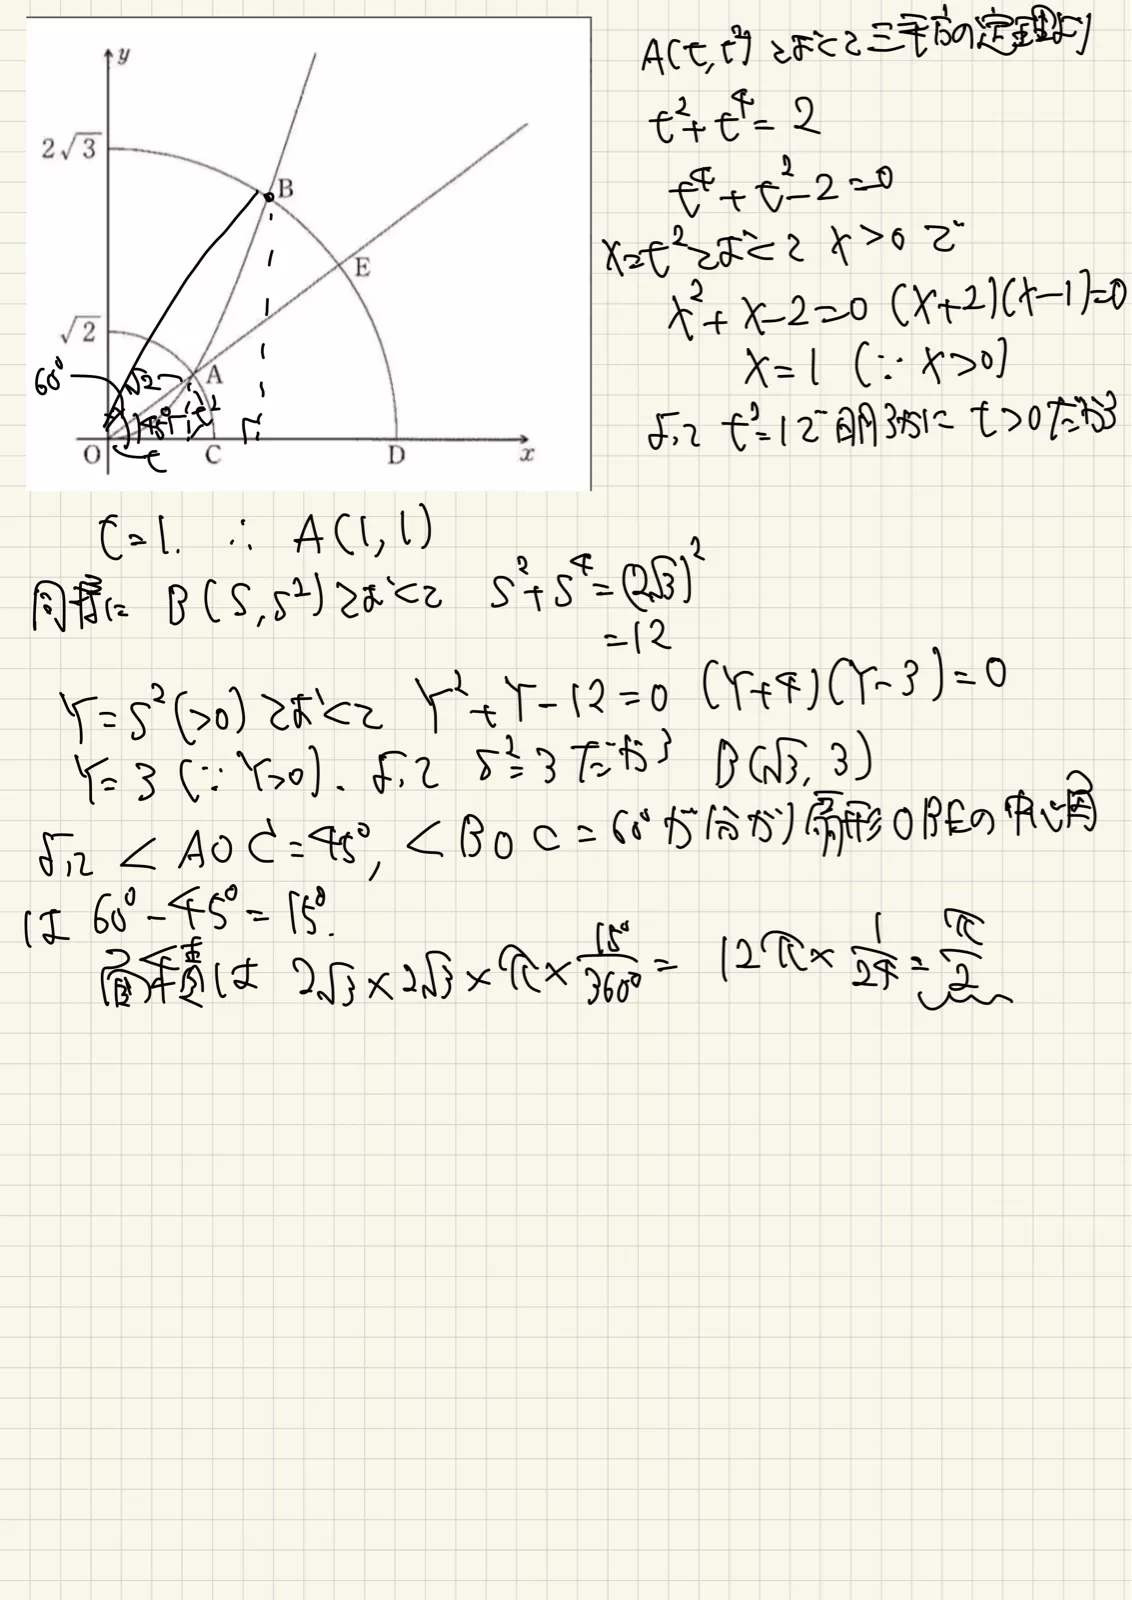 y
2√3
B
E
√2
60°
√2
A
45°
t²
O
t
C
D
x
A(t, t²) とおくと三平方の定理より
t²+t⁴=2
t⁴+t²-2=0
X=t²とおくと X>0 で
X²+X-2=0 (X+2)(X-1)=0
X=1 (∵ X>0)
よって t²=1で明らかに t>0だから
t=1. ∴ A(1,1)
同様に B(s,s²)とおくと s²+s⁴=(2√3)²
=12
Y=s²(>0)とおくと Y²+Y-12=0 (Y+4)(Y-3)=0
Y=3 (∵ Y>0). よって s²=3だから B(√3, 3)
よって <AOC=45°, <BOC=60°が分かり扇形OBEの中心角
は 60°-45°=15°.
面積は 2√3×2√3×π×15°/360°= 12π×1/24=π/2